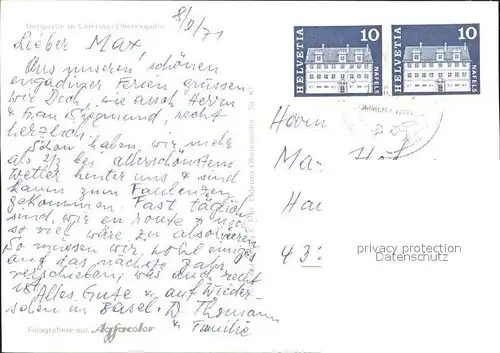 Dorfpartie in Celerina /Oberengadin
8/9/71
Lieber Max,
Aus unseren schönen
engadiner Ferien grüssen
wir Dich, wie auch Herrn
& Frau Siegmund, recht
herzlich.
Schon haben wir mehr
als 2/3 bei allerschönstem
Wetter hinter uns & sind
kaum zum Faulenzen
gekommen. Fast täglich
sind wir en route & noch
so viel wäre zu absolvieren.
So müssen wir wohl einiges
auf das nächste Jahr
verschieben, was auch recht
ist. Alles Gute & auf Wieder-
sehen in Basel. D. Thomann
& Familie
Fotografiere mit Agfacolor
HELVETIA 10 NÄFELS
HELVETIA 10 NÄFELS
Herrn
Ma
Ha
43
privacy protection
Datenschutz